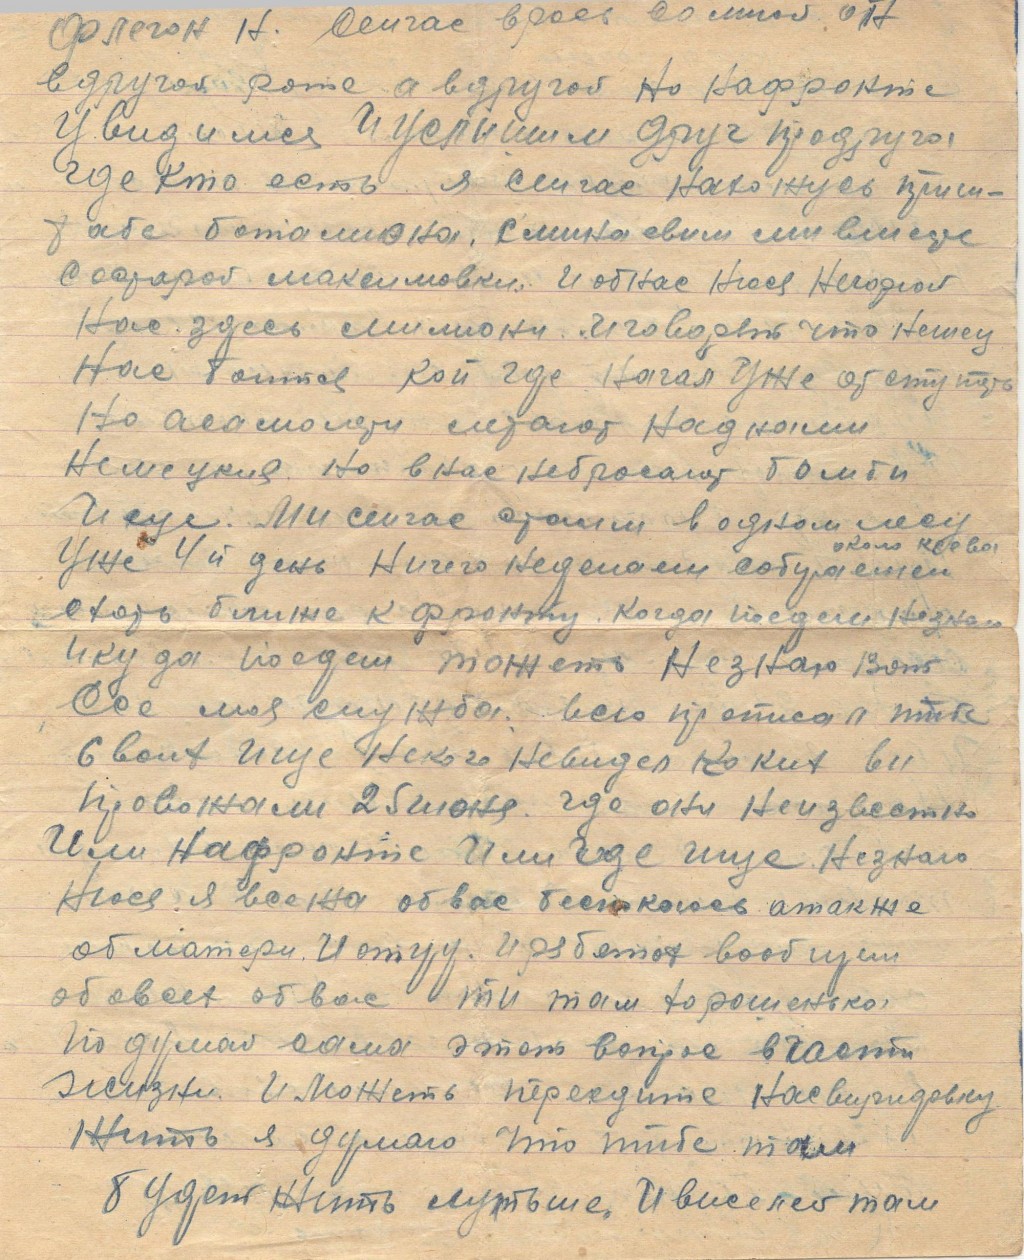 Флегон Н. Сейчас врось со мной он
вдругой роте а вдругой но нафронте
увидимся И услышим друг продруга
где кто есть я сейчас нахожусь приш-
табе баталиона. Смина евим ми вместе
состарой максимовки. И обнас Нюся Негорюй
Нас здесь милиони. И говорят что немец
Нас боится кой где начал уже отступать
Но асамолети летают над нами
Немецкия. но внас небросают бомби
Исце. Ми сейчас стоим водном лесу
около киева
Уже 4й день Ничего неделаем собираемся
ехать ближе к фронту. когда поедем незнаю
Икуда поедем тожеть Незнаю вот
Все моя служба. всю прописал тибе
Своих ище Некого Невидел каких ви
провожали 25 июня. где они неизвестно
Или Нафронте Или где ище Незнаю
Нюся я всежа обвас беспокоюсь атакже
обматери. И отцу. И ребятах вообщем
обовсех обвас ти там хорошенько
подумай сама этот вопрос вчасти
жизни. И можеть переедите Насвиридовку
Жить я думаю что тибе там
будет жить лутьше. И виселей там